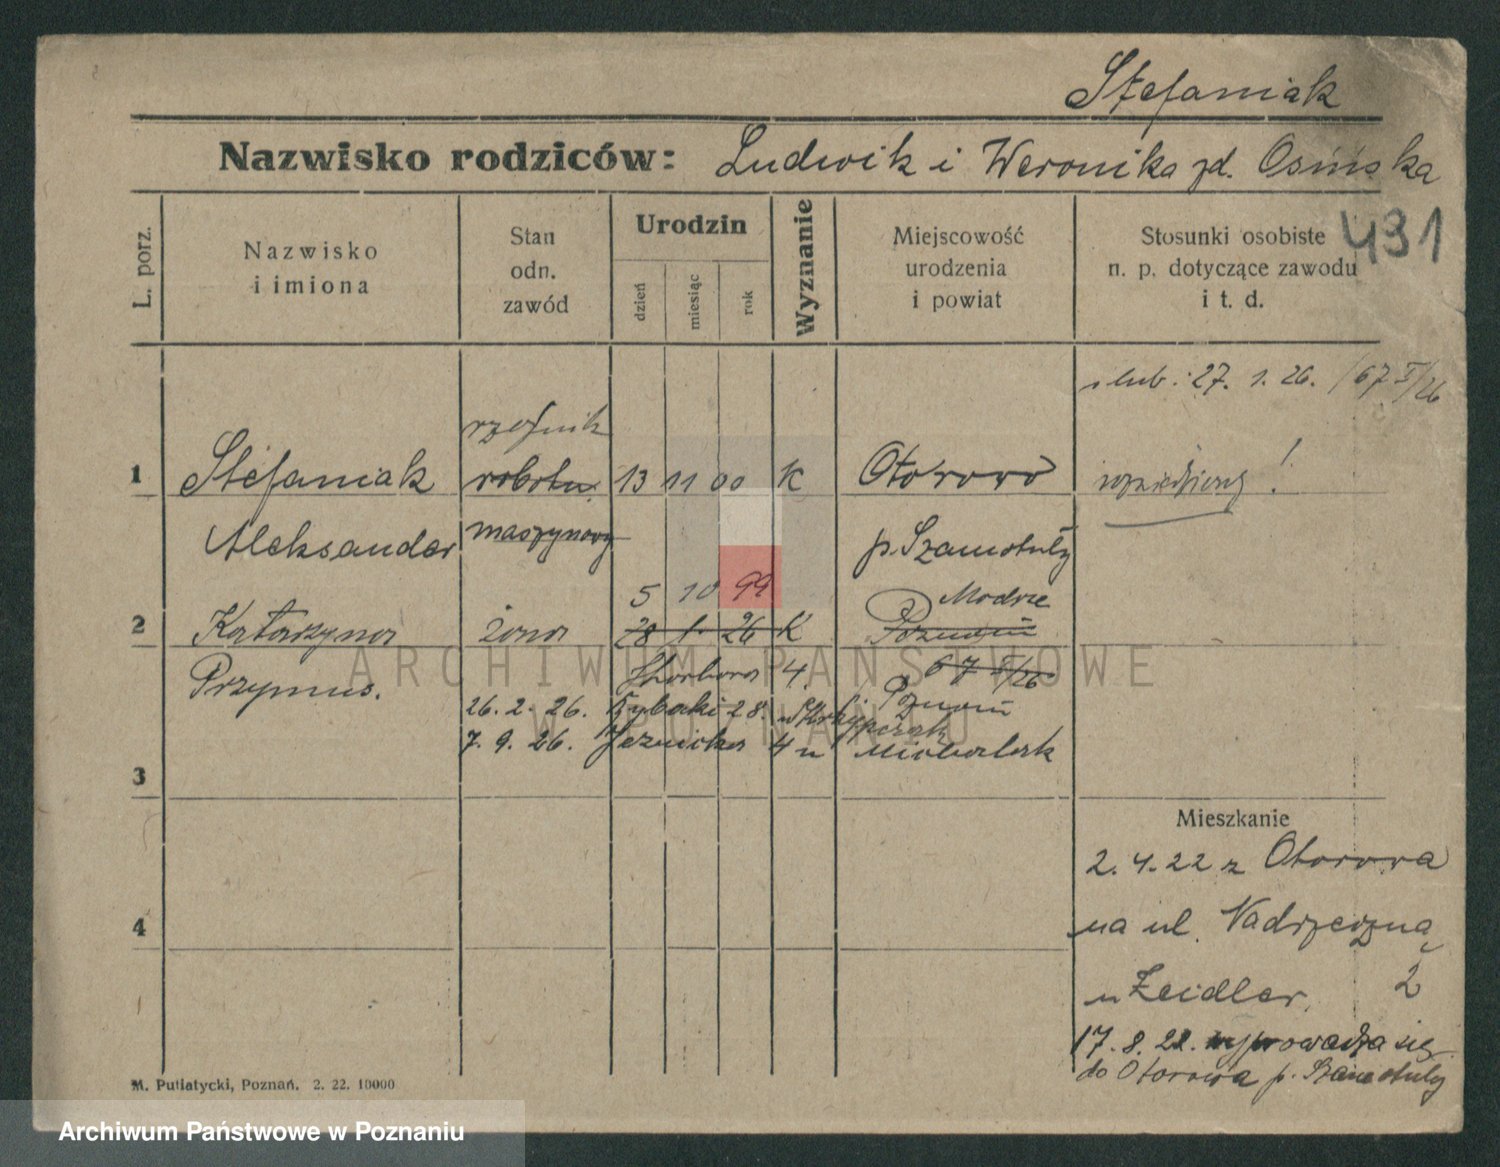 Stefaniak
Nazwisko rodziców: Ludwik i Weronika zd. Osińska
491
L. porz.
Nazwisko
i imiona
Stan
odn.
zawód
Urodzin
dzień
miesiąc
rok
Wyznanie
Miejscowość
urodzenia
i powiat
Stosunki osobiste
n. p. dotyczące zawodu
i t. d.
ślub: 27. 1. 26. /67 I/26
rzeźnik
1 Stefaniak robotn. 13 11 00 K Otorowo
Aleksander maszynowy p. Szamotuły
5 10 99 Modrze
2 Katarzyna żona 28 1. 26 K Poznań
Przymus. 4. 67 I/26
Poznań
26. 2. 26. Rybaki 28.
7. 9. 26. 4 u
3
Mieszkanie
2. 4. 22 z Otorowa
4
na ul. Nadrzeczną
u Zeidler, 2
17. 8. 22. wyprowadza się
do Otorowa p. Szamotuły
M. Putiatycki, Poznań. 2. 22. 10000
ARCHIWUM PAŃSTWOWE
W POZNANIU
Archiwum Państwowe w Poznaniu